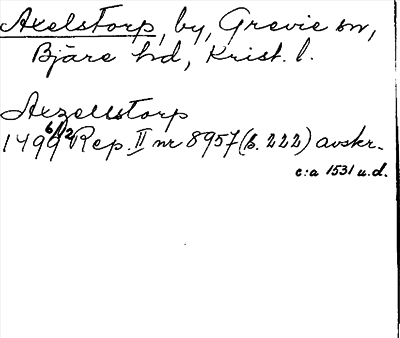 Axelstorp, by, Grevie sn,
Bjäre hd, Krist. l.
Axzellstorp
1499 6/12 Rep. II nr 8957 (b. 222) avskr.
c:a 1531 u.d.